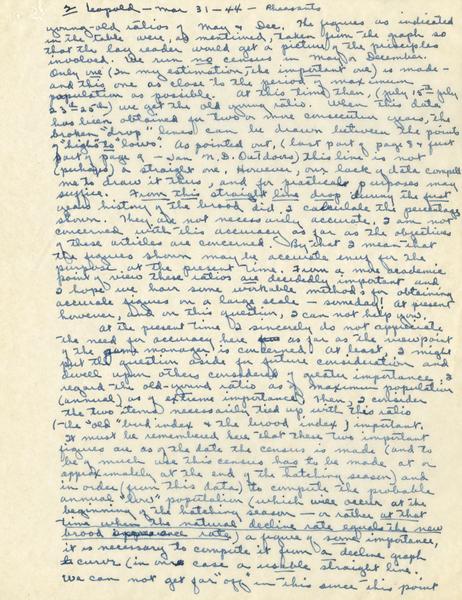 2 Leopold - Mar 31 - 44 - Pheasants
young-old ratios of May & Dec. The figures as indicated
in the table were, as mentioned, taken from the graph so
that the lay reader would get a picture of the principles
involved. We run no census in May or December.
Only one (in my estimation, the important one) is made -
and this one as close to the period of maximum
population as possible. At this time then, (July 15th - July
25th) we get the old young ratio. When this data
has been obtained for two or more consecutive years, the
broken "drop" lines can be drawn between the points
of "highs to lows". As pointed out, (last part of page 8 & first
part of page 9 - Jan N.D. Outdoors) this line is not
(perhaps) a straight one. However, our lack of data compels
me to draw it thus, and for practical purposes may
suffice. From this straight line drop during the first
years history of the brood did I calculate the percentages
shown. They are not necessarily accurate. I am not
concerned with this accuracy as far as the objectives
of these articles are concerned. By that I mean that
the figures shown may be accurate enuf for the
purpose at the present time. From a more academic
point of view these ratios are decidedly important and
I hope we have some workable methods for obtaining
accurate figures on a large scale - someday! At present
however, and on this question, I can not help you.
At the present time I sincerely do not appreciate
the need for accuracy here as far as the viewpoint
of the game manager is concerned. At least, I might
put the question aside for future consideration and
dwell upon others considered of greater importance. I
regard the old-young ratio as of maximum population
(annual) as of extreme importance. Then, I consider
the two items necessarily tied up with this ratio
(the "old" bird index & the brood index) important.
It must be remembered here that these two important
figures are as of the date the census is made (and to
be of much use this census has to be made at or
approximately at the end of the hatching season) and
in order (from this data) to compute the probable
annual "low" population (which will occur at the
beginning of the hatching season - or rather at that
time when the natural decline rate equals the new
brood appearance rate) a figure of some importance,
it is necessary to compute it from a decline graph
curve (in our case a usable straight line.
We can not get far "off" in this since this point